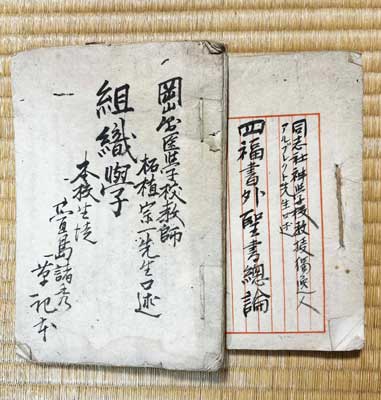 岡山医学校教師
柘植宗一先生口述
組織學
本校生徒
同志社神学校教授獨逸人
アルブレクト先生口述
四福書外聖書總論